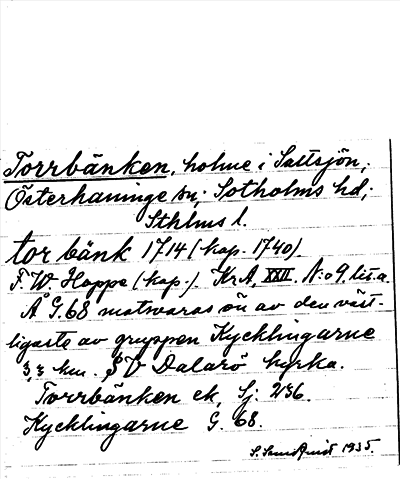 Torrbänken, holme i Saltsjön,
Österhaninge sn; Sotholms hd;
Sthlms l.
tor bänk 1714 (kop. 1740).
F. W. Hoppe (kop.). Kr.A, XXII, N:o 9, lit. a.
Å G. 68 motsvaras ön av den väst-
ligaste av gruppen Kycklingarne
3,3 km. SV Dalarö kyrka.
Torrbänken ek, Sj. 236.
Kycklingarne G. 68.
S. Sundquist 1935.